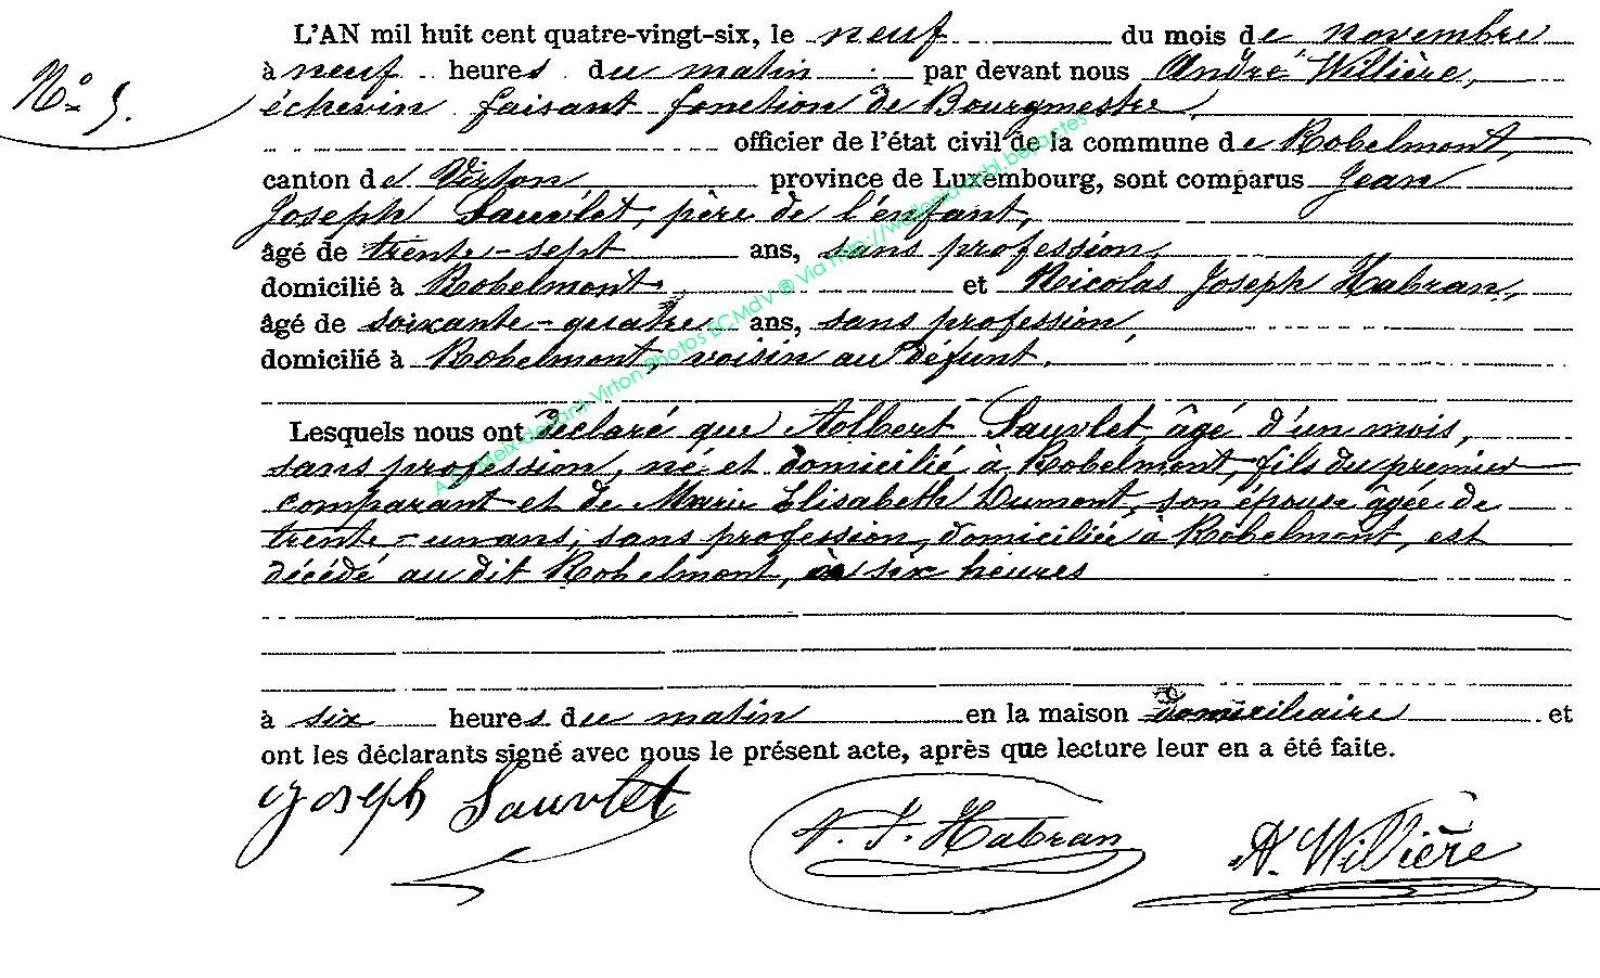 L'AN mil huit cent quatre-vingt-six, le neuf du mois de novembre
N° 5.
à neuf heures du matin par devant nous André Willière,
échevin faisant fonction de Bourgmestre,
officier de l'état civil de la commune de Robelmont,
canton de Virton province de Luxembourg, sont comparus Jean
Joseph Sauvlet, père de l'enfant,
âgé de trente-sept ans, sans profession,
domicilié à Robelmont, et Nicolas Joseph Habran,
âgé de soixante-quatre ans, sans profession,
domicilié à Robelmont, voisin au défunt.
Lesquels nous ont déclaré que Albert Sauvlet, âgé d'un mois,
sans profession, né et domicilié à Robelmont, fils du premier
comparant et de Marie Elisabeth Dumont, son épouse âgée de
trente-un ans, sans profession, domiciliée à Robelmont, est
décédé au dit Robelmont, à six heures
à six heures du matin en la maison domiciliaire et
ont les déclarants signé avec nous le présent acte, après que lecture leur en a été faite.
Joseph Sauvlet
N. J. Habran
A. Willière
A.C. Meix-devant-Virton Photos ECMdV ® Via http://wallonia-asbl.be/actes